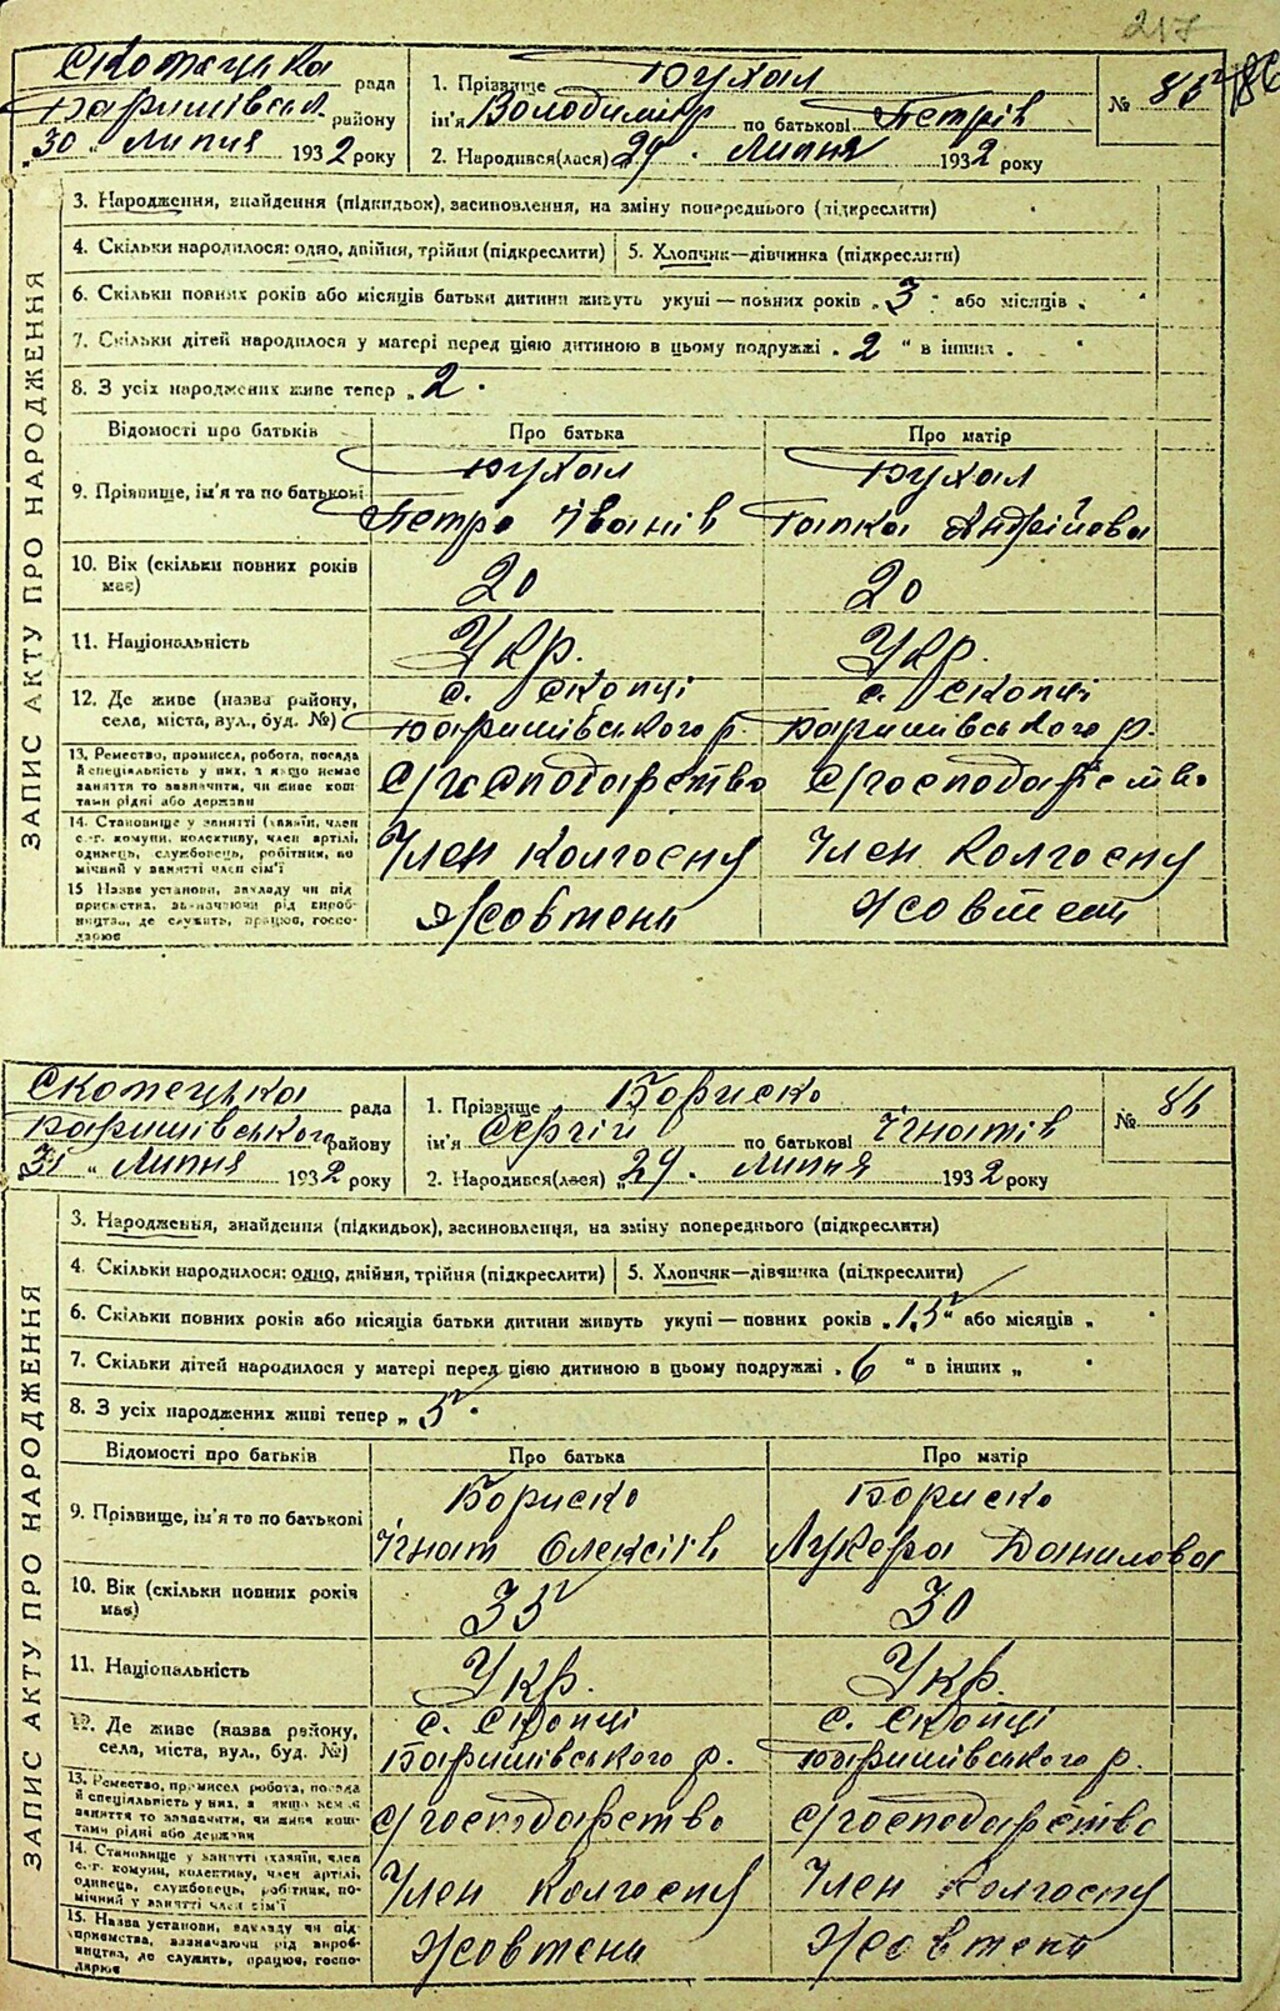 217
Скопецька рада
Баришівськ. району
"30" Липня 1932 року
1. Прізвище Бухал
ім'я Володимир по батькові Петрів
2. Народився(лася) "29" Липня 1932 року
№ 85
86
ЗАПИС АКТУ ПРО НАРОДЖЕННЯ
3. Народження, знайдення (підкидьок), засиновлення, на зміну попереднього (підкреслити)
4. Скільки народилося: одно, двійня, трійня (підкреслити) 5. Хлопчик—дівчинка (підкреслити)
6. Скільки повних років або місяців батьки дитини живуть укупі — повних років „ 3 " або місяців „ "
7. Скільки дітей народилося у матері перед цією дитиною в цьому подружжі „ 2 " в інших „ "
8. З усіх народжених живе тепер „ 2 "
Відомості про батьків Про батька Про матір
9. Прізвище, ім'я та по батькові Бухал Бухал
Петро Іванів Гапка Андрійова
10. Вік (скільки повних років має) 20 20
11. Національність Укр. Укр.
12. Де живе (назва району, села, міста, вул., буд. №) с. Скопці с. Скопці
Баришівського р. Баришівського р.
13. Ремество, промисел, робота, посада
й спеціальність у них, а якщо немає
заняття то зазначити, чи живе кош-
тами рідні або держави
С/господарство С/господарство
14. Становище у занятті (хазяїн, член
с.-г. комуни, колективу, член артілі,
одинець, службовець, робітник, по
мічний у занятті член сім'ї
Член колгоспу Член колгоспу
15 Назва установи, закладу чи під
приємства, зазначаючи рід вироб-
ництва, де служить, працює, госпо-
дарює
Жовтень Жовтень
Скопецька рада
Баришівського району
"31" Липня 1932 року
1. Прізвище Бориско
ім'я Сергій по батькові Ігнатів
2. Народився(лася) "29" Липня 1932 року
№ 86
ЗАПИС АКТУ ПРО НАРОДЖЕННЯ
3. Народження, знайдення (підкидьок), засиновлення, на зміну попереднього (підкреслити)
4. Скільки народилося: одно, двійня, трійня (підкреслити) 5. Хлопчик—дівчинка (підкреслити)
6. Скільки повних років або місяців батьки дитини живуть укупі — повних років „ 15 " або місяців „ "
7. Скільки дітей народилося у матері перед цією дитиною в цьому подружжі „ 6 " в інших „ "
8. З усіх народжених живі тепер „ 5 "
Відомості про батьків Про батька Про матір
9. Прізвище, ім'я та по батькові Бориско Бориско
Ігнат Олексіїв Лукера Данилова
10. Вік (скільки повних років має) 35 30
11. Національність Укр. Укр.
12. Де живе (назва району, села, міста, вул., буд. №) с. Скопці с. Скопці
Баришівського р. Баришівського р.
13. Ремество, промисел робота, посада
й спеціальність у них, а якщо немає
заняття то зазначити, чи живе кош-
тами рідні або держави
С/господарство С/господарство
14. Становище у занятті (хазяїн, член
с.-г. комуни, колективу, член артілі,
одинець, службовець, робітник, по-
мічний у занятті член сім'ї
Член колгоспу Член колгоспу
15. Назва установи, закладу чи під
приємства, зазначаючи рід вироб-
ництва, де служить, працює, госпо-
дарює
Жовтень Жовтень